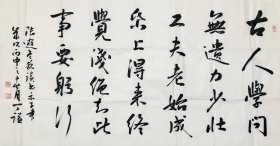 古人學問
無遺力少壯
工夫老始成
帋上得来終
覺淺絕知此
事要躬行
陸遊冬夜讀書示子聿
丙申